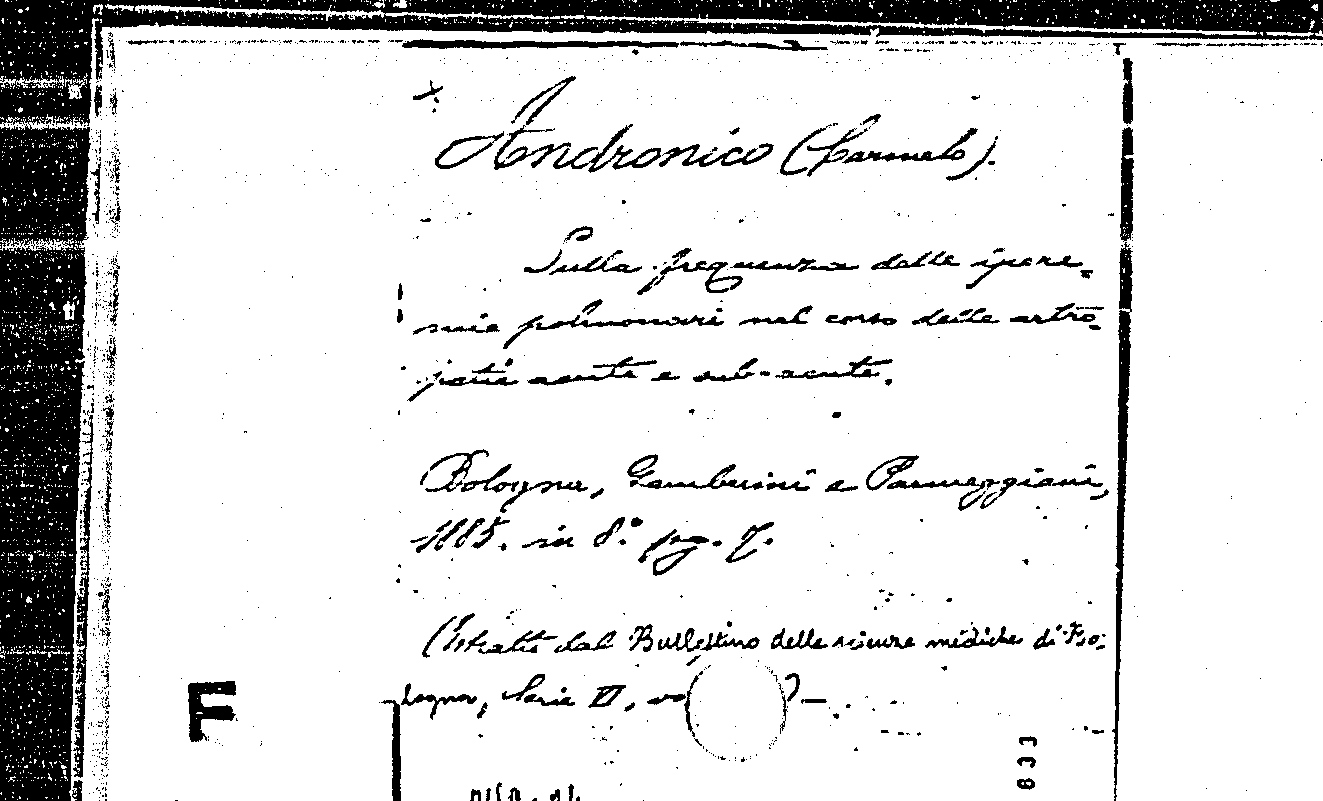 Andronico (Carmelo).
Sulla frequenza delle ipere-
mie polmonari nel corso delle artro-
patie acute e sub-acute.
Bologna, Gamberini e Parmeggiani,
1885. in 8.° pg. 7.
(Estratto dal Bullettino delle scienze mediche di Bo-
logna, Serie VI,
F
833